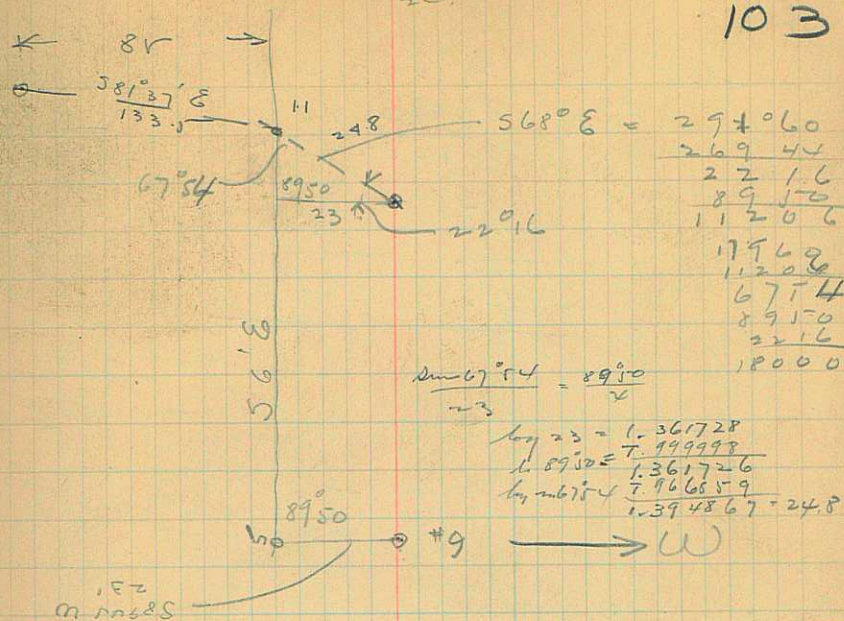 103
8r
S81°37' E
133.5
11
24.8
S68° E = 291°60
269 44
22 16
89 50
112 06
179 60
112 06
67 54
89 50
22 16
180 00
67°54
8950
23
22°16
S 6' E
sin 67°54 = 89°50
23 x
log 23 = 1.361728
l. 89°50 = 1.999998
1.361726
log sin 67°54 1.966859
1.394867 = 24.8
89°50
5
#9
W
23'